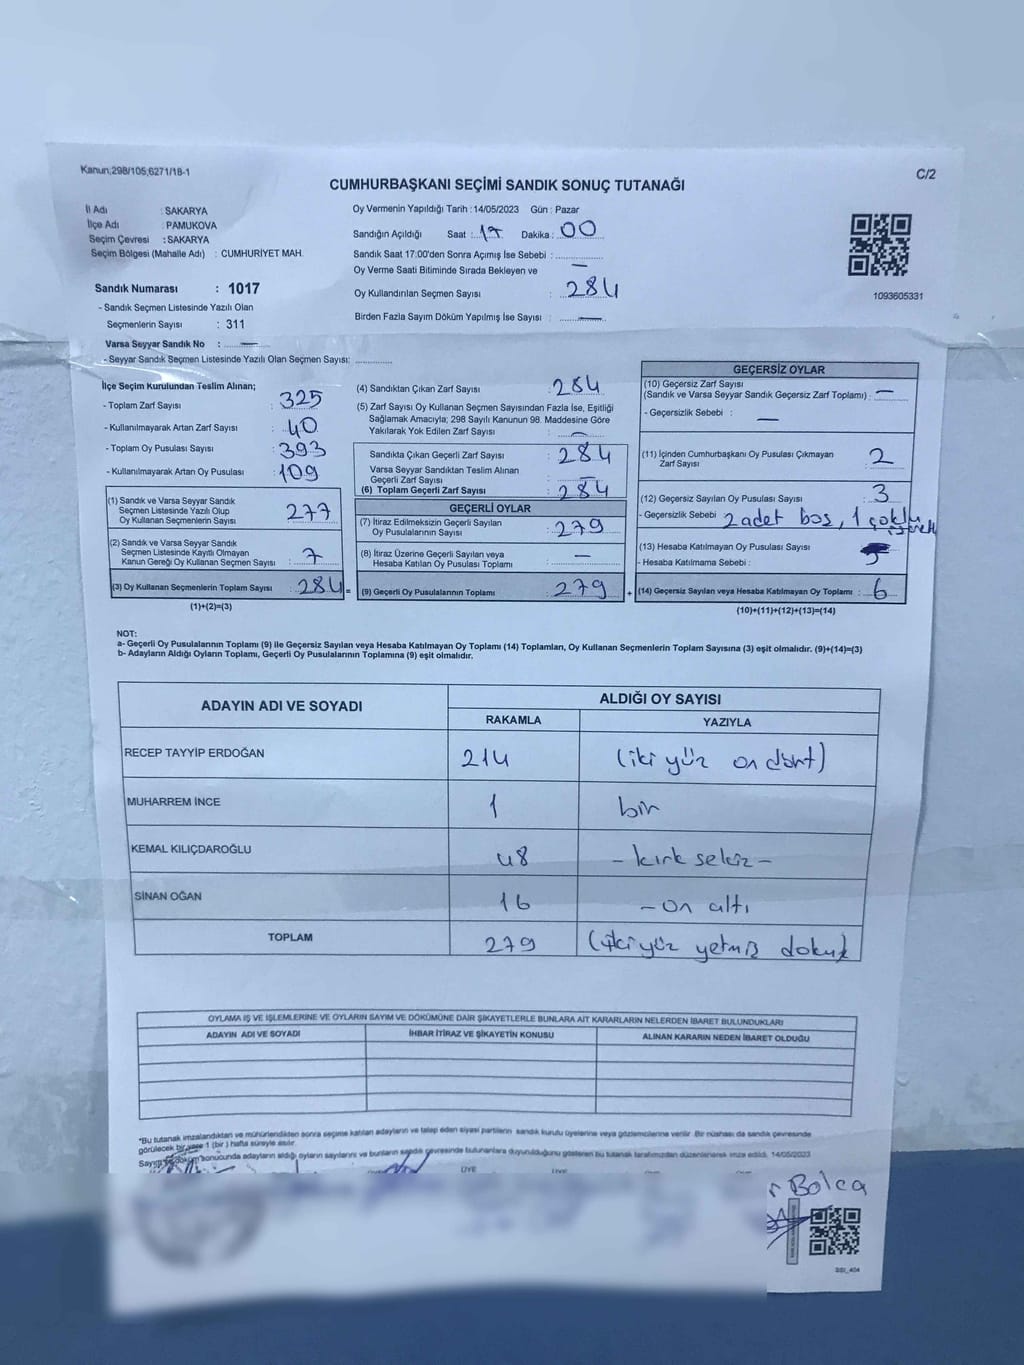 Kanun:298/105,6271/18-1
C/2
CUMHURBAŞKANI SEÇİMİ SANDIK SONUÇ TUTANAĞI
İl Adı : SAKARYA
İlçe Adı : PAMUKOVA
Seçim Çevresi : SAKARYA
Seçim Bölgesi (Mahalle Adı) : CUMHURİYET MAH.
Sandık Numarası : 1017
- Sandık Seçmen Listesinde Yazılı Olan
Seçmenlerin Sayısı : 311
Varsa Seyyar Sandık No : —
- Seyyar Sandık Seçmen Listesinde Yazılı Olan Seçmen Sayısı: ............
Oy Vermenin Yapıldığı Tarih : 14/05/2023 Gün : Pazar
Sandığın Açıldığı Saat : 17 Dakika : 00
Sandık Saat 17:00'den Sonra Açımış İse Sebebi : ............
Oy Verme Saati Bitiminde Sırada Bekleyen ve —
Oy Kullandırılan Seçmen Sayısı : 284
Birden Fazla Sayım Döküm Yapılmış İse Sayısı : —
1093605331
İlçe Seçim Kurulundan Teslim Alınan;
- Toplam Zarf Sayısı : 325
- Kullanılmayarak Artan Zarf Sayısı : 40
- Toplam Oy Pusulası Sayısı : 393
- Kullanılmayarak Artan Oy Pusulası : 109
(1) Sandık ve Varsa Seyyar Sandık
Seçmen Listesinde Yazılı Olup
Oy Kullanan Seçmenlerin Sayısı : 277
(2) Sandık ve Varsa Seyyar Sandık
Seçmen Listesinde Kayıtlı Olmayan
Kanun Gereği Oy Kullanan Seçmen Sayısı : 7
(3) Oy Kullanan Seçmenlerin Toplam Sayısı : 284 =
(1)+(2)=(3)
(4) Sandıktan Çıkan Zarf Sayısı : 284
(5) Zarf Sayısı Oy Kullanan Seçmen Sayısından Fazla İse, Eşitliği
Sağlamak Amacıyla; 298 Sayılı Kanunun 98. Maddesine Göre
Yakılarak Yok Edilen Zarf Sayısı : —
Sandıkta Çıkan Geçerli Zarf Sayısı : 284
Varsa Seyyar Sandıktan Teslim Alınan
Geçerli Zarf Sayısı : —
(6) Toplam Geçerli Zarf Sayısı : 284
GEÇERLİ OYLAR
(7) İtiraz Edilmeksizin Geçerli Sayılan
Oy Pusulalarının Sayısı : 279
(8) İtiraz Üzerine Geçerli Sayılan veya
Hesaba Katılan Oy Pusulası Toplamı : —
(9) Geçerli Oy Pusulalarının Toplamı : 279 +
GEÇERSİZ OYLAR
(10) Geçersiz Zarf Sayısı
(Sandık ve Varsa Seyyar Sandık Geçersiz Zarf Toplamı) : —
- Geçersizlik Sebebi : —
(11) İçinden Cumhurbaşkanı Oy Pusulası Çıkmayan
Zarf Sayısı : 2
(12) Geçersiz Sayılan Oy Pusulası Sayısı : 3
- Geçersizlik Sebebi 2 adet boş, 1 çoklu
(13) Hesaba Katılmayan Oy Pusulası Sayısı
- Hesaba Katılmama Sebebi :
(14) Geçersiz Sayılan veya Hesaba Katılmayan Oy Toplamı : 6
(10)+(11)+(12)+(13)=(14)
NOT:
a- Geçerli Oy Pusulalarının Toplamı (9) ile Geçersiz Sayılan veya Hesaba Katılmayan Oy Toplamı (14) Toplamları, Oy Kullanan Seçmenlerin Toplam Sayısına (3) eşit olmalıdır. (9)+(14)=(3)
b- Adayların Aldığı Oyların Toplamı, Geçerli Oy Pusulalarının Toplamına (9) eşit olmalıdır.
ADAYIN ADI VE SOYADI
ALDIĞI OY SAYISI
RAKAMLA YAZIYLA
RECEP TAYYİP ERDOĞAN 214 (iki yüz on dört)
MUHARREM İNCE 1 bir
KEMAL KILIÇDAROĞLU 48 - kırk sekiz -
SİNAN OĞAN 16 - on altı
TOPLAM 279 (iki yüz yetmiş dokuz)
OYLAMA İŞ VE İŞLEMLERİNE VE OYLARIN SAYIM VE DÖKÜMÜNE DAİR ŞİKAYETLERLE BUNLARA AİT KARARLARIN NELERDEN İBARET BULUNDUKLARI
ADAYIN ADI VE SOYADI İHBAR İTİRAZ VE ŞİKAYETİN KONUSU ALINAN KARARIN NEDEN İBARET OLDUĞU
*Bu tutanak imzalandıktan ve mühürlendikten sonra seçime katılan adayların ve talep eden siyasi partilerin sandık kurulu üyelerine veya gözlemcilerine verilir. Bir nüshası da sandık çevresinde
görülecek bir yere 1 (bir) hafta süreyle asılır.
Sayım döküm sonucunda adayların aldığı oyların sayılarını ve bunların sandık çevresinde bulunanlara duyurulduğunu gösteren bu tutanak tarafımızdan düzenlenerek imza edildi. 14/05/2023
ÜYE
Bolca